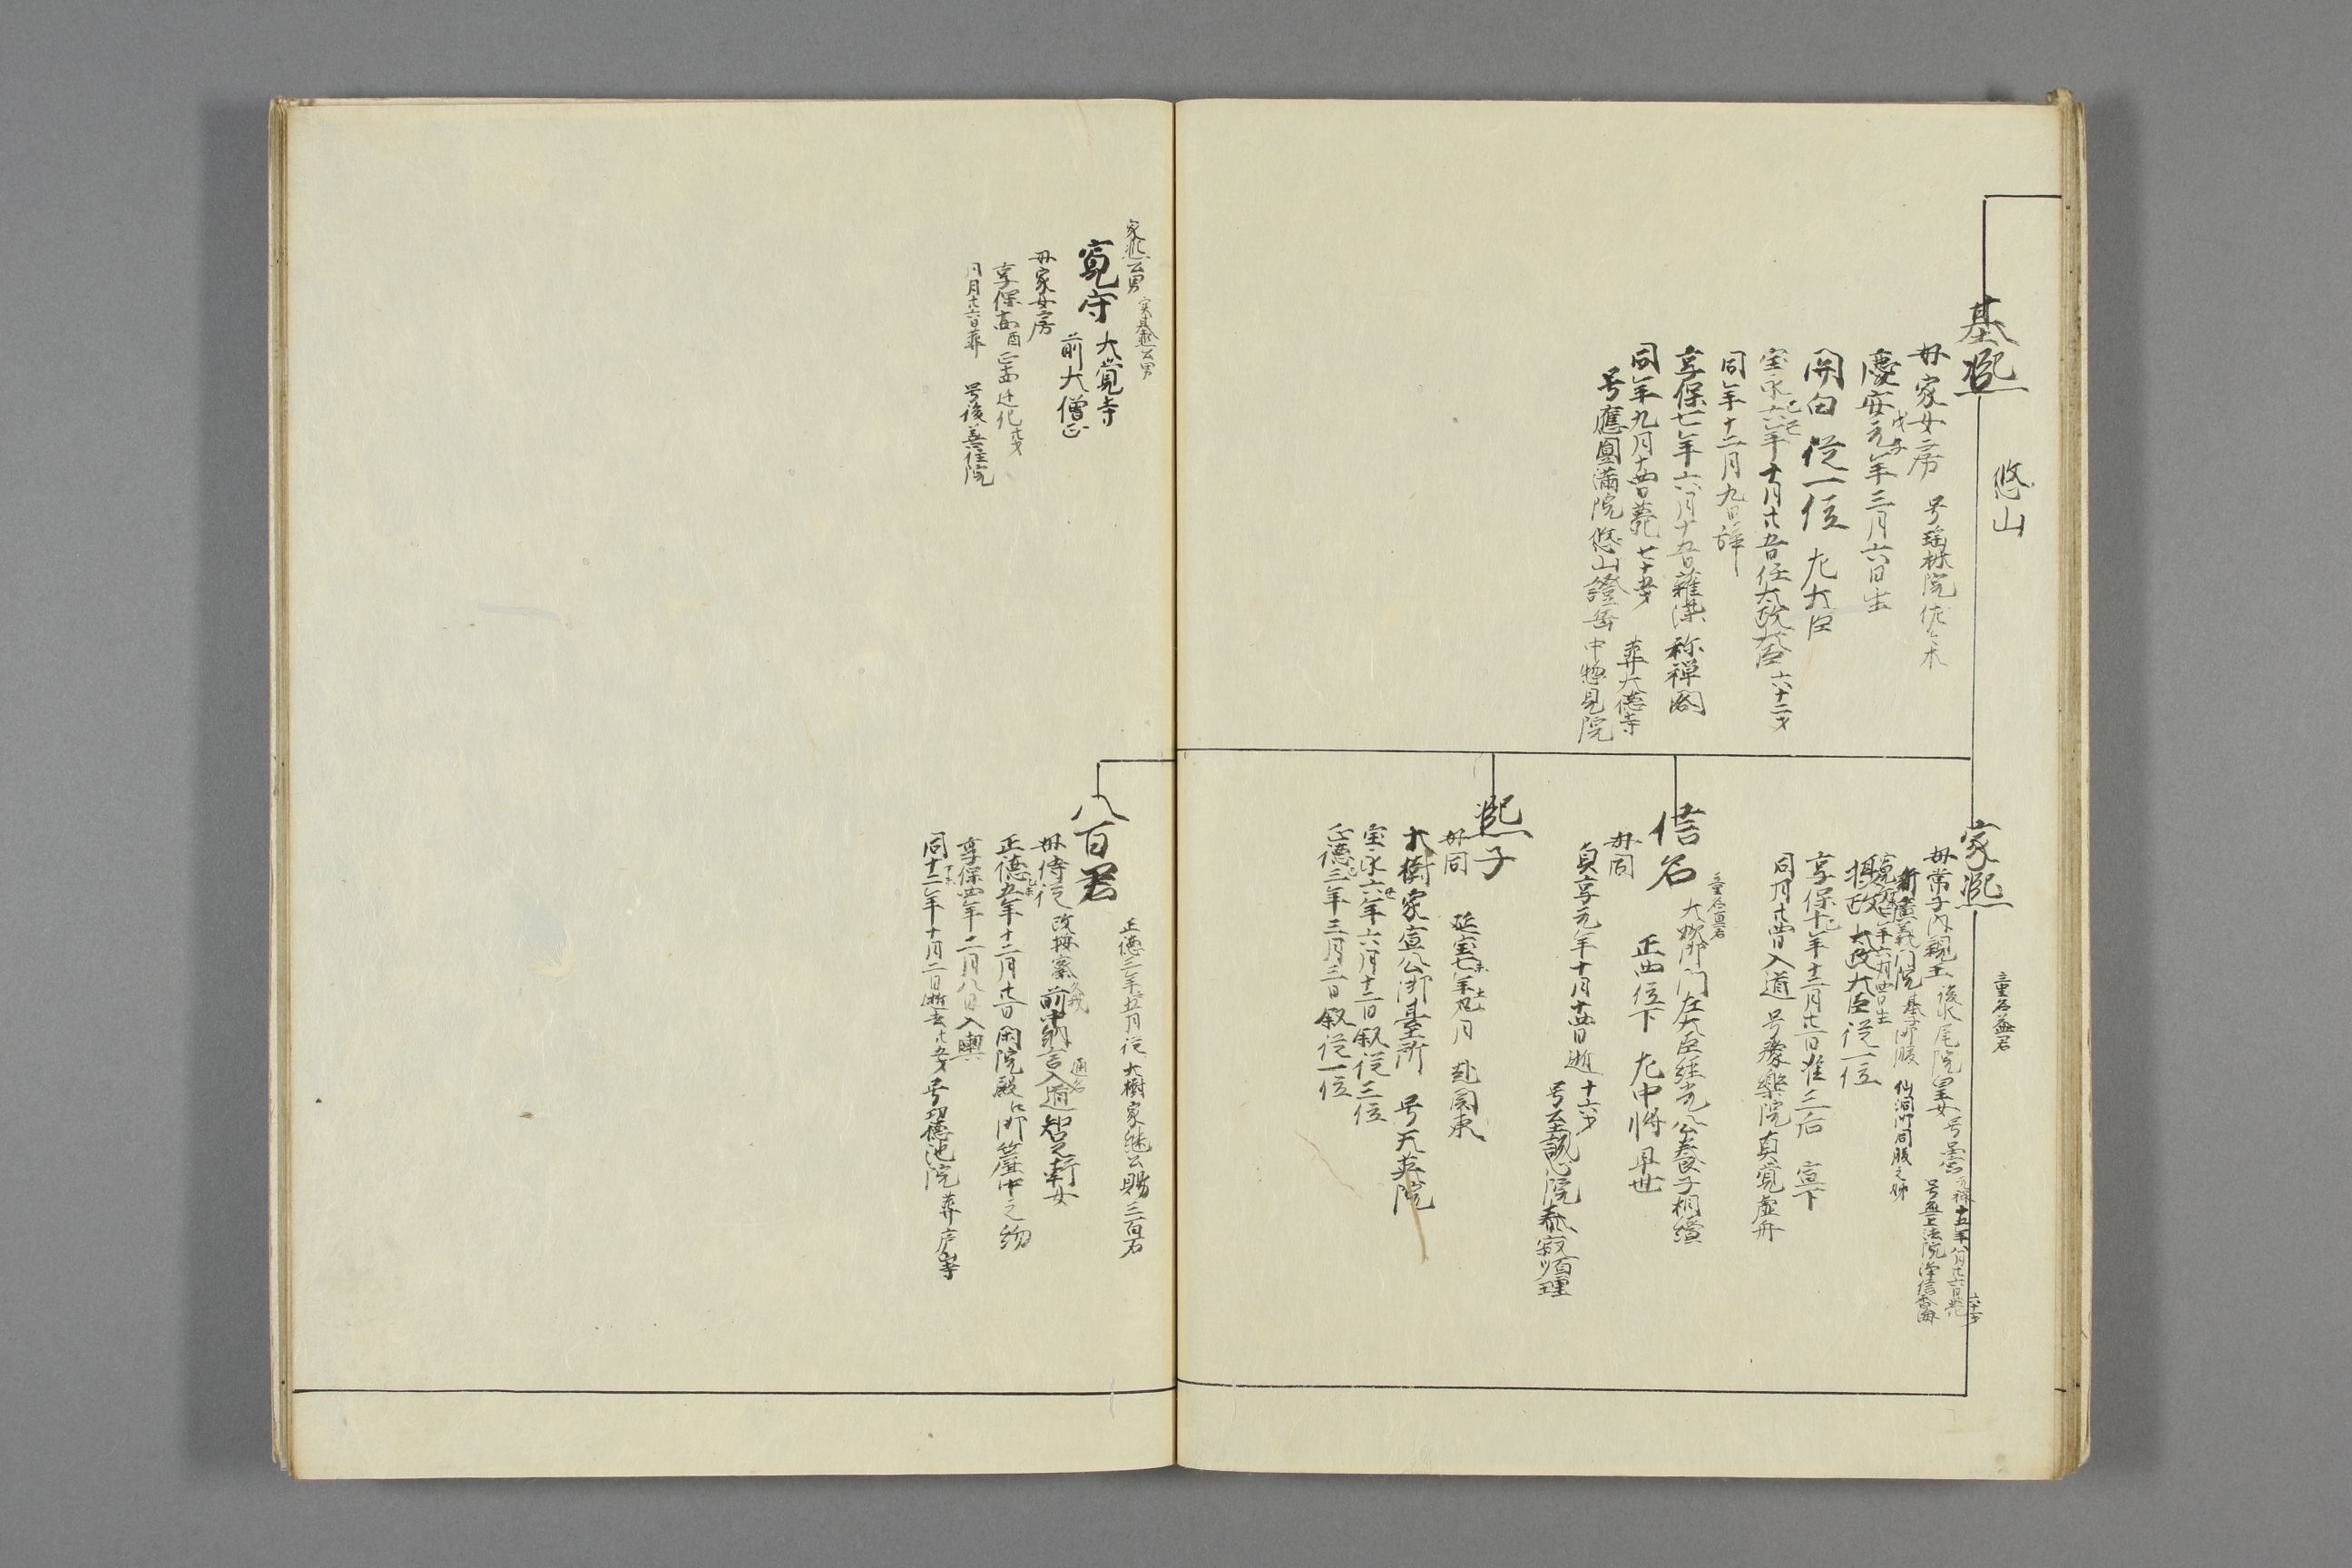 基熈
悠山
母家女房 号瑤林院 佐々木
慶安元年戊子三月六日生
関白 従一位 左大臣
宝永六年己丑十月廿五日任太政大臣 六十二才
同年十二月九日辞
享保七年六月十五日雜染 称禅閤
同年九月十四日薨 七十五才 葬大徳寺
号應圓滿院悠山證岳 中惣見院
家熈
童名益君
母常子内親王 後水尾院皇女 号品宮 元禄十五年八月廿六日薨 六十一才
号無上法院
新廣義門院 基子御腹 仙洞御同腹之姉
寛文七年六月四日生
摂政 太政大臣 従一位
享保十年十二月廿二日准三后 宣下
同月廿四日入道 号豫樂院真覚虚舟
信名
童名直君
大炊御門左大臣経光公養子相續
母同 正四位下 左中将 早世
貞享元年十月十四日逝 十六才
号至誠心院泰寂順理
熈子
母同 延宝七年未十二月 赴関東
大樹家宣公御臺所 号天英院
宝永六年丑六月十二日叙従三位
正徳三年巳三月三日叙従一位
家熈公男 実基熈公男
寛守 大覚寺
前大僧正
母家女房
同月廿六日葬 号後善住院
八百君
正徳三年五月従大樹家継公賜三百石
母侍従 改按察 久我前中納言入道智足軒女 通名
正徳五年十二月廿二日閑院殿江御簾中之約
享保四年二月八日入輿
同十二年十月二日逝去 廿五才 号功徳池院 葬庐山寺